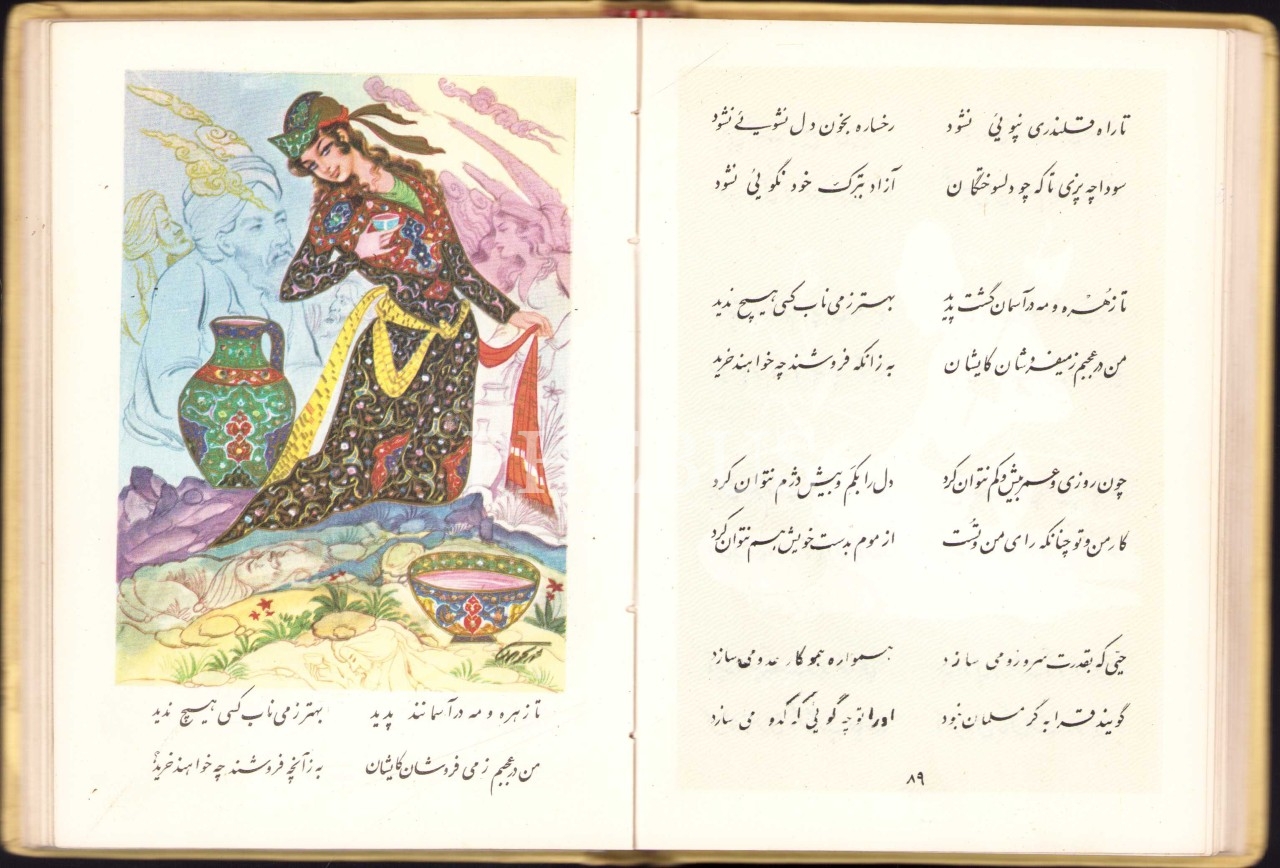 تا راه قلندری نپوئی نشود رخساره بخون دل نشوئی نشود
سودا چه پزی تا که چو دلسوختگان آزاد بترک خود نگوئی نشود
تا زهره و مه در آسمان گشت پدید بهتر ز می ناب کسی هیچ ندید
من در عجبم ز میفروشان کایشان به زانکه فروشند چه خواهند خرید
چون روزی و عمر بیش و کم نتوان کرد دل را بکم و بیش دژم نتوان کرد
کار من و تو چنانکه رای من و تست از موم بدست خویش هم نتوان کرد
حیی که بقدرت سر و رو می سازد همواره همو کار عدو می سازد
گویند قرابه گر مسلمان نبود او را تو چه گوئی که کدو می سازد
۸۹
تا زهره و مه در آسمانند پدید بهتر ز می ناب کسی هیچ ندید
من در عجبم ز می فروشان کایشان به زآنچه فروشند چه خواهند خرید؟